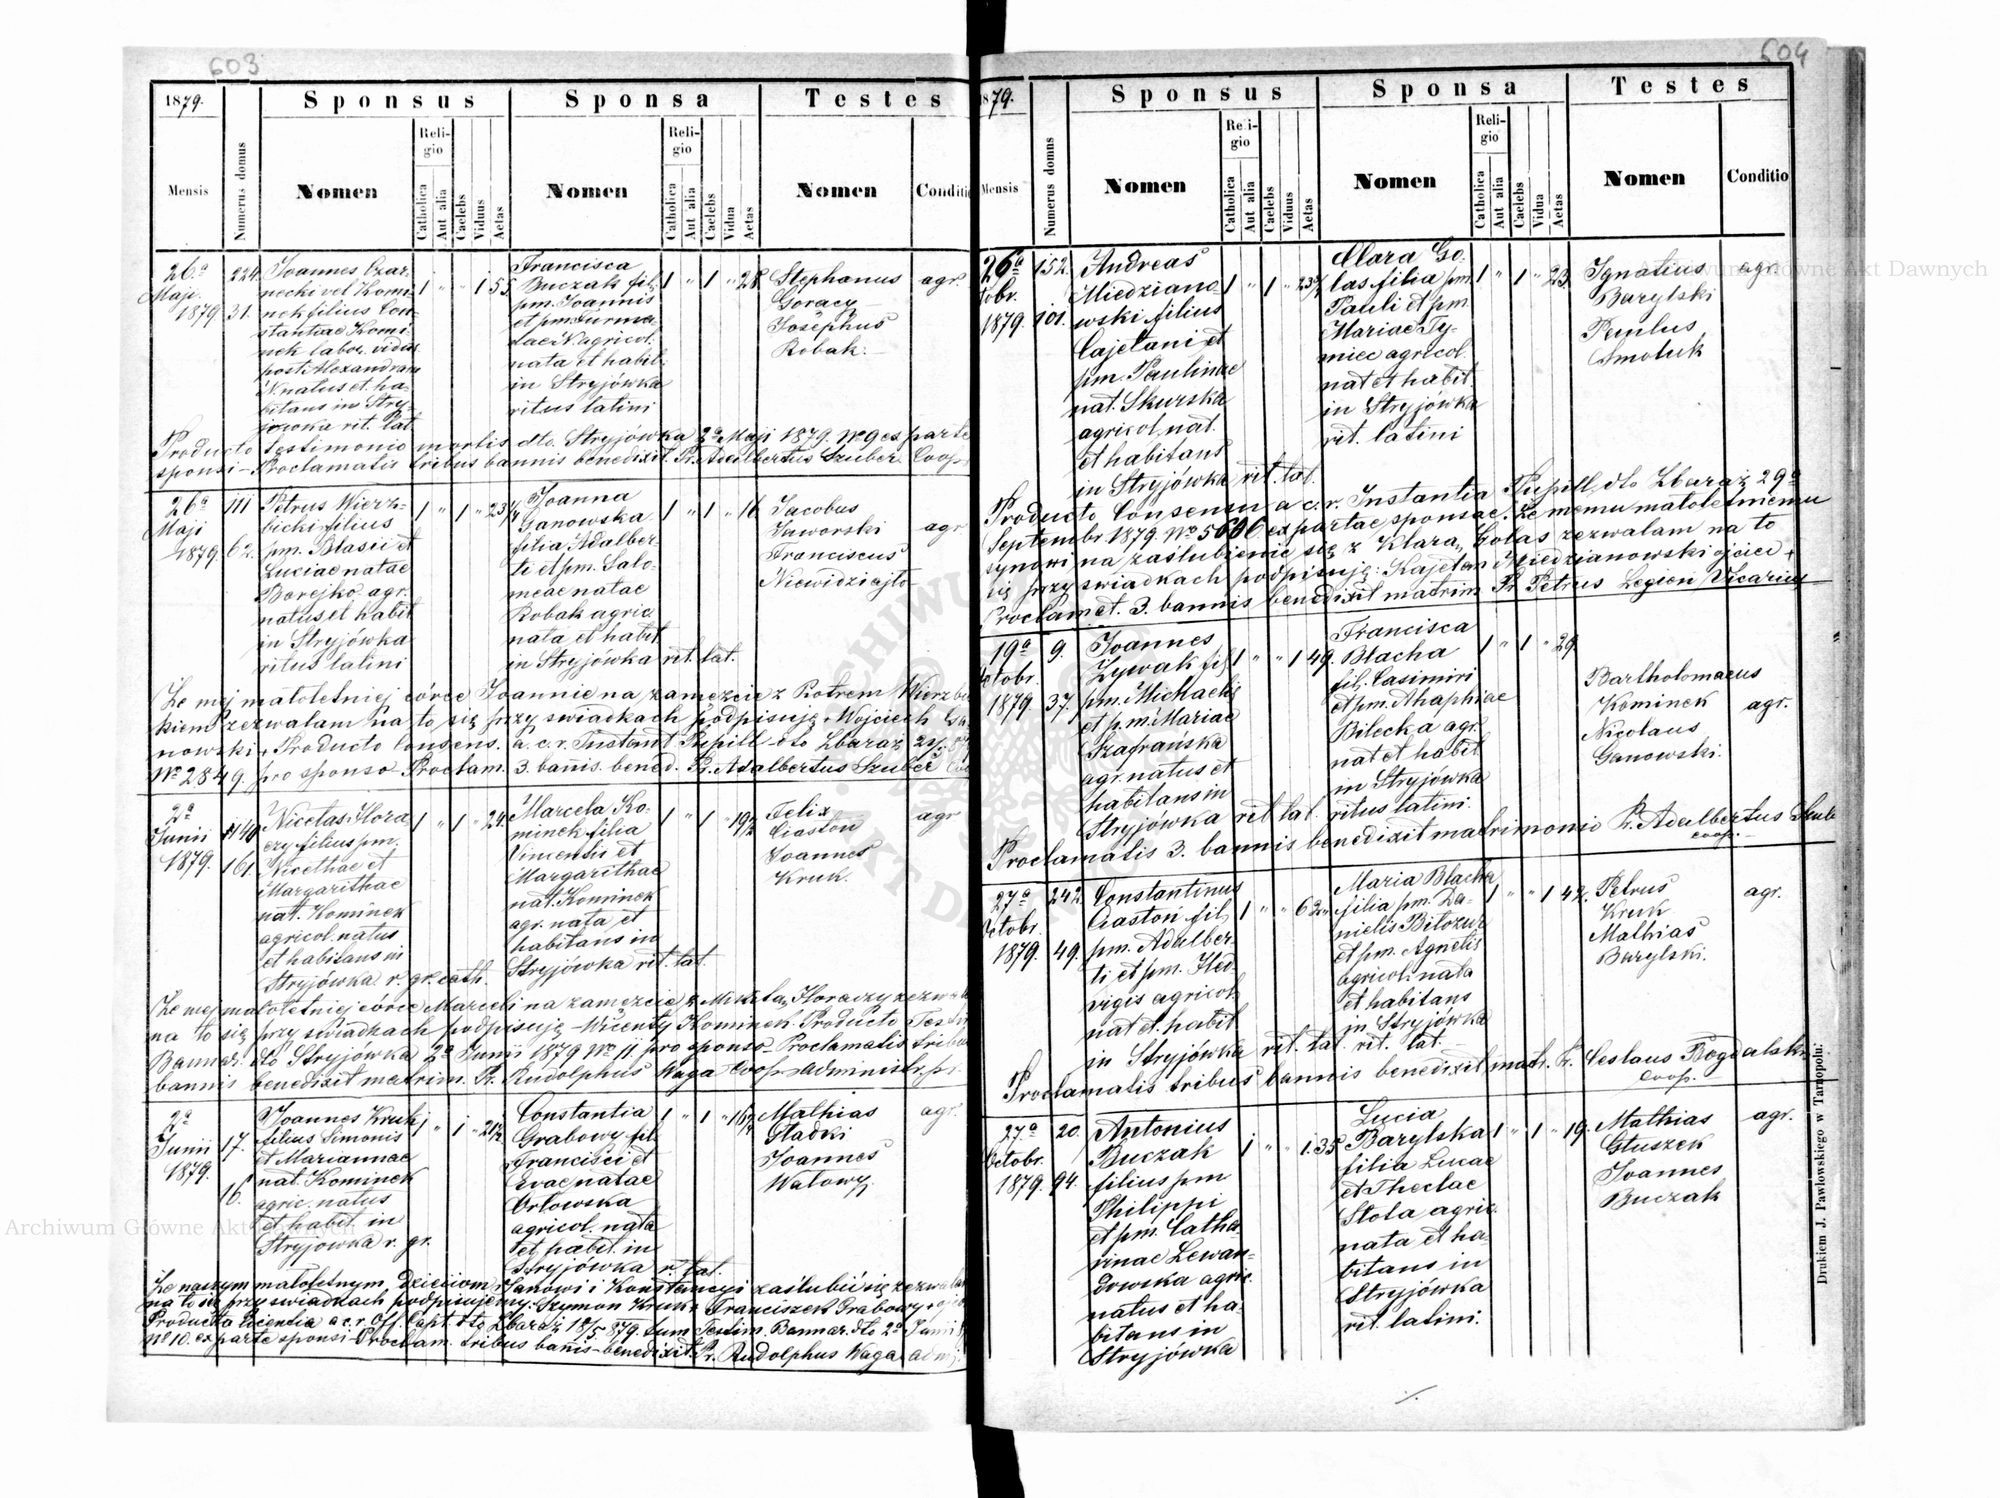 603
1879.
Sponsus
Sponsa
Testes
Mensis
Numerus domus
Nomen
Religio
Catholica
Aut alia
Caelebs
Viduus
Aetas
Nomen
Religio
Catholica
Aut alia
Caelebs
Vidua
Aetas
Nomen
Conditio
26a
Maji
1879
224.
31.
Joannes Czar-
necki vel Komi-
nek filius Con-
stantiae Komi
nek labor. viduus
post Alexandram
N. natus et ha-
bitans in Stry-
jówka rit. lat.
1 " " 1 55
Francisca
Buczak fil.
pm. Joannis
et pm.
N agricol.
nata et habit.
in Stryjówka
ritus latini
1 " 1 " 28.
Stephanus
Goracy
Josephus
Robak.
agr.
Producto Testimonio mortis dto. Stryjówka 2a Maji 1879. No 9 ex parte
sponsi - Proclamatis tribus bannis benedixit Pr. Adalbertus Szuber Coop
26a
Maji
1879.
111
62.
Petrus Wierz-
bicki filius
pm. Blasii et
Luciae natae
Borejko agr.
natus et habit
in Stryjówka
ritus latini
1 " 1 " 23 1/4
Joanna
Ganowska
filia Adalber-
ti et pm. Salo-
meae natae
Robak agric
nata et habit
in Stryjówka rit. lat.
1 " 1 " 16
Jacobus
Jaworski
Franciscus
Niewidziajło
agr
Że mej małoletniej córce Joannie na zamęzcie z Piotrem Wierzbic
kiem zezwalam na to się przy swiadkach podpisuję + Wojciech Ga-
nowski + Producto Consens. a. c. r. Instant Pupill dto Zbaraż 21/5
No 2849. pro sponso Proclam. 3. bannis. bened. Pr. Adalbertus Szuber
2a
Junii
1879.
140
161.
Nicetas Hora
czy filius pm.
Nicethae et
Margarithae
nat. Kominek
agricol. natus
et habitans in
Stryjówka r. gr. cath.
1 " 1 " 24.
Marcela Ko-
minek filia
Vincentii et
Margarithae
nat. Kominek
agr. nata et
habitans in
Stryjówka rit. lat.
1 " 1 " 19 1/2
Felix
Ciaston
Joannes
Kruk.
agr
Że mej małoletniej córce Marceli na zamęzcie z Mikitą Horaczy zezwa
na to się przy swiadkach podpisuję - Wicenty Kominek. Producto Testim
Bannor. dto Stryjówka 2a Junii 1879 No 11. pro sponso - Proclamatis tribus
bannis benedixit matrim. Pr. Rudolphus Waga Coop administr. p.
2a
Junii
1879.
17.
16.
Joannes Kruk
filius Simonis
et Mariannae
nat. Kominek
agric. natus
et habit. in
Stryjowka r. gr.
1 " 1 " 21 1/2
Constantia
Grabowy fil.
Francisci et
Evae natae
Orłowska
agricol. nata
et habit. in
Stryjówka r. lat.
1 " 1
Mathias
Gładki
Joannes
Watowy
agr.
Że naszym małoletnym dzieciom Janowi i Konstancyi zaślubić się zezwalam
na to się przy swiadkach podpisujemy: Szymon Kruk + Franciszek Grabowy +
Producta Licentia a c. r. Off. Capt. dto Zbaraż 18/5 879. cum Testim. Bannor. dto 2a Junii
No 10. ex parte sponsi Proclam. tribus bannis - benedixit Pr. Rudolphus Waga adm.
604
1879.
Sponsus
Sponsa
Testes
Mensis
Numerus domus
Nomen
Religio
Catholica
Aut alia
Caelebs
Viduus
Aetas
Nomen
Religio
Catholica
Aut alia
Caelebs
Vidua
Aetas
Nomen
Conditio
26a
tobr.
1879.
152.
101.
Andreas
Miedziano-
wski filius
Cajetani et
pm. Paulinae
nat. Skurska
agricol. nat.
et habitans
in Stryjówka rit. lat.
1 " 1 " 23
Clara Go-
łas filia pm.
Pauli et pm.
Mariae Ty-
miec agricol.
nat et habit.
in Stryjówka
rit. latini
1 " 1 " 23.
Ignatius
Baryłski
Paulus
Smoluk
agr.
Producto Consensu a c. r. Instantia Pupill. dto Zbaraż 29a
Septembr. 1879. No 5606 ex partae sponsae. Że memu małoletniemu
synowi na zaślubienie się z Klarą Gołas zezwalam na to
się przy swiadkach podpisuję: Kajetan Miedzianowski ojciec +
Proclamat. 3. bannis benedixit matrim Pr. Petrus Legien Vicarius
19a
Octobr.
1879
9.
37.
Joannes
Zywak fil
pm. Michaelis
et p.m. Mariae
Szafrańska
agr. natus et
habitans in
Stryjówka rit lat.
1 " " 1 49.
Francisca
Blacha
fil. Casimiri
et pm. Ahaphiae
Bilecka agr.
nat et habit
in Stryjówka
ritus latini.
1 " 1 " 29.
Bartholomaeus
Kominek
Nicolaus
Ganowski.
agr.
Proclamatis 3. bannis benedixit matrimonio Pr. Adalbertus Szube
coop.
27a
Octobr.
1879.
242.
49.
Constantinus
Ciastoń fil.
pm. Adalber-
ti et pm. Hed-
vigis agricol.
nat et. habit
in Stryjówka rit. lat.
1 " " 62
Maria Blacha
filia pm. Da-
nielis Biłozur
et pm. Agnetis
agricol. nata
et habitans
in Stryjówka
rit. lat.
1 " " 1 42.
Petrus
Kruk
Mathias
Baryłski.
agr.
Proclamatis tribus bannis benedixit matr. Pr. Ceslaus Bogdalski
Coop.
27a
Octobr.
1879.
20.
94.
Antonius
Buczak
filius pm
Philippi
et pm. Catha
rinae Lewan-
dowska agric.
natus et ha-
bitans in
Stryjówka
1 " " 1. 35
Lucia
Baryłska
filia Lucae
et Theclae
Stola agric.
nata et ha-
bitans in
Stryjówka
rit. latini.
1 " 1 " 19.
Mathias
Głuszek
Joannes
Buczak
agr.
Drukiem J. Pawłowskiego w Tarnopolu.
Archiwum Główne Akt Dawnych
Archiwum Główne Akt Dawnych